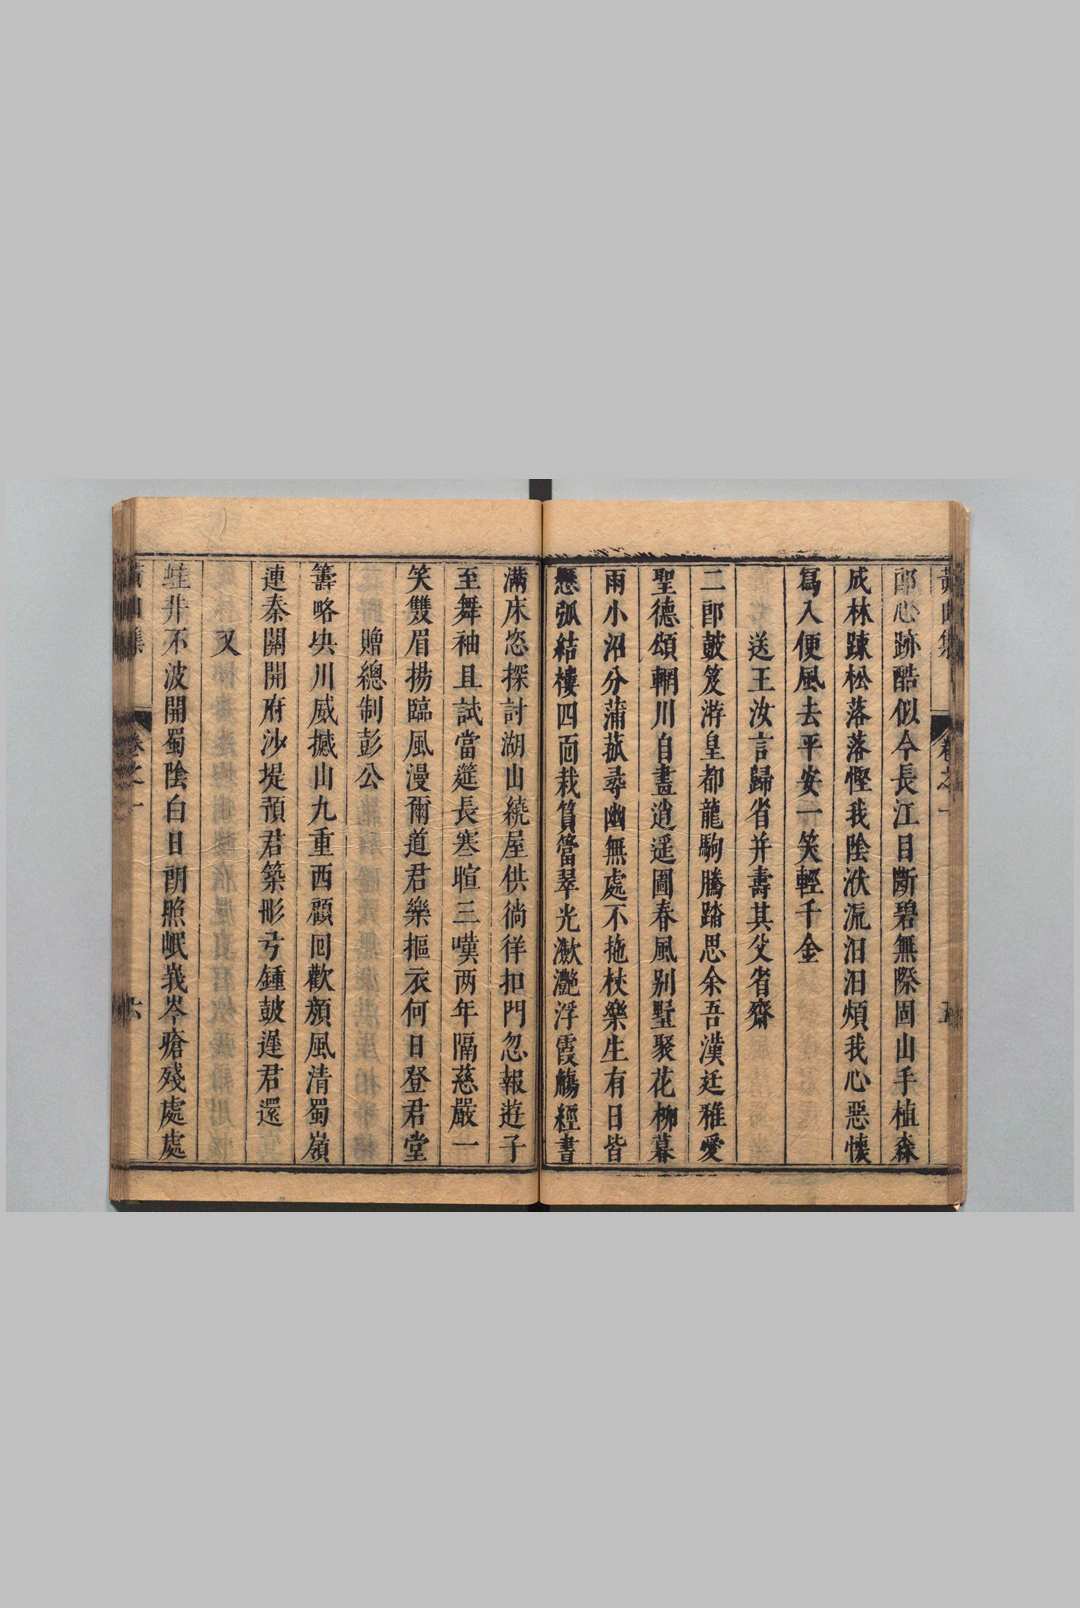 郎心跡酷似今長江目斷碧無際固山手植森
成林踈松落落慳我陰洑流汩汩煩我心惡懷
寫入便風去平安一笑輕千金
送王汝言歸省并壽其父省齋
二郎皷笈游皇都龍駒騰踏思余吾漢廷雅愛
聖德頌輞川自畫逍遥圖春風别墅聚花栁暮
雨小沼分蒲菰尋幽無處不拖杖樂生有日皆
懸弧結樓四面栽篔簹翠光瀲灧浮霞觴經書
滿床恣探討湖山繞屋供徜徉扣門忽報逰子
至舞袖且試當筵長寒暄三嘆两年隔慈嚴一
笑雙眉揚臨風漫爾道君樂摳衣何日登君堂
贈總制彭公
籌略坱川威撼山九重西顧回歡顔風清蜀嶺
連秦關開府沙堤預君築彤弓鍾皷遲君還
又
蛙井不波開蜀陰白日朗照岷峩岑瘡殘處處
黃
集
卷之一
六
卷之一
五